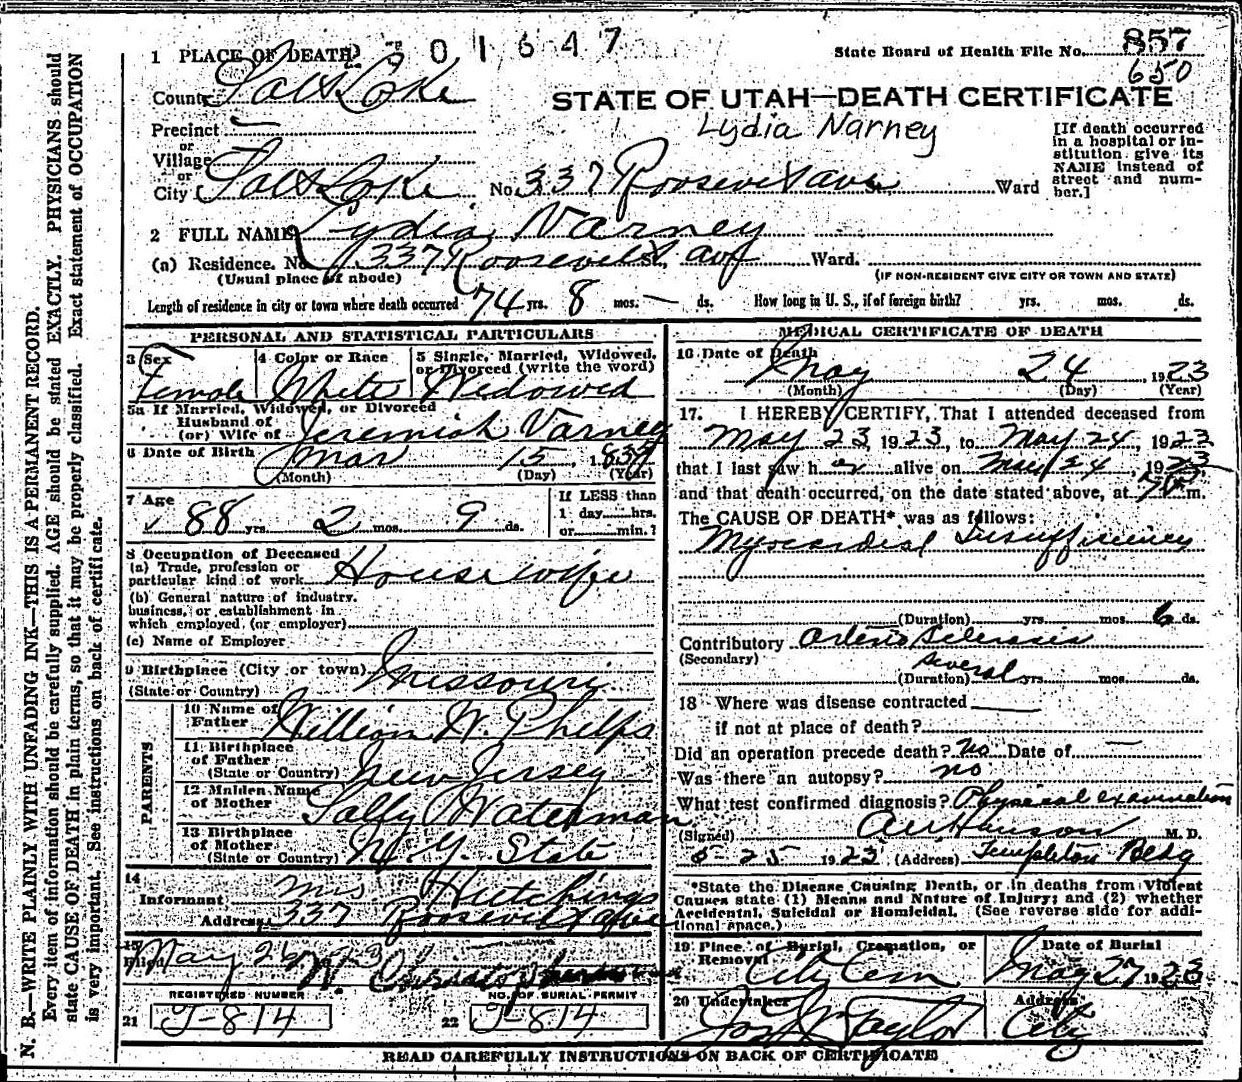 N. B.—WRITE PLAINLY WITH UNFADING INK—THIS IS A PERMANENT RECORD.
Every item of information should be carefully supplied. AGE should be stated EXACTLY. PHYSICIANS should
state CAUSE OF DEATH in plain terms, so that it may be properly classified. Exact statement of OCCUPATION
is very important. See instructions on back of certificate.
1 PLACE OF DEATH 01647
State Board of Health File No. 857
650
County Salt Lake
STATE OF UTAH—DEATH CERTIFICATE
Lydia Narney
Precinct
or
Village
or
City Salt Lake No. 337 Roosevelt ave, Ward
[If death occurred
in a hospital or in-
stitution give its
NAME instead of
street and num-
ber.]
2 FULL NAME Lydia Varney
(a) Residence. No. 337 Roosevelt St., ave Ward.
(Usual place of abode)
(IF NON-RESIDENT GIVE CITY OR TOWN AND STATE)
Length of residence in city or town where death occurred 74 yrs. 8 mos. — ds. How long in U. S., if of foreign birth? yrs. mos. ds.
PERSONAL AND STATISTICAL PARTICULARS
3 Sex 4 Color or Race 5 Single, Married, Widowed,
or Divorced (write the word)
Female White Widowed
5a If Married, Widowed, or Divorced
Husband of
(or) Wife of Jeremiah Varney
6 Date of Birth Mar 15, 1835
(Month) (Day) (Year)
7 Age
88 yrs. 2 mos. 9 ds.
If LESS than
1 day hrs.
or min.?
8 Occupation of Deceased
(a) Trade, profession or
particular kind of work Housewife
(b) General nature of industry,
business, or establishment in
which employed (or employer)
(c) Name of Employer
9 Birthplace (City or town) Missouri
(State or Country)
PARENTS
10 Name of
Father William W. Phelps
11 Birthplace
of Father
(State or Country) New Jersey
12 Maiden Name
of Mother Sally Waterman
13 Birthplace
of Mother
(State or Country) N. Y. State
14
Informant Mrs Hutchings
Address 337 Roosevelt ave
15
Filed May 26
REGISTERED NUMBER
NO. OF BURIAL PERMIT
21 J-814
22 J-814
MEDICAL CERTIFICATE OF DEATH
16 Date of Death
May 24, 1923
(Month) (Day) (Year)
17. I HEREBY CERTIFY, That I attended deceased from
May 23, 1923, to May 24, 1923
that I last saw her alive on May 24, 1923
and that death occurred, on the date stated above, at m.
The CAUSE OF DEATH* was as follows:
Myocardial Insufficiency
(Duration) yrs. mos. 6 ds.
Contributory Arterio Sclerosis
(Secondary)
(Duration) several yrs. mos. ds.
18 Where was disease contracted
if not at place of death?
Did an operation precede death? No Date of —
Was there an autopsy? no
What test confirmed diagnosis? Physical examination
(Signed) M. D.
5-25 1923 (Address) Templeton Bldg
*State the Disease Causing Death, or in deaths from Violent
Causes state (1) Means and Nature of Injury; and (2) whether
Accidental, Suicidal or Homicidal. (See reverse side for addi-
tional space.)
19 Place of Burial, Cremation, or
Removal
City Cem
Date of Burial
May 27 1923
20 Undertaker
Jos Wm Taylor
Address
City
READ CAREFULLY INSTRUCTIONS ON BACK OF CERTIFICATE